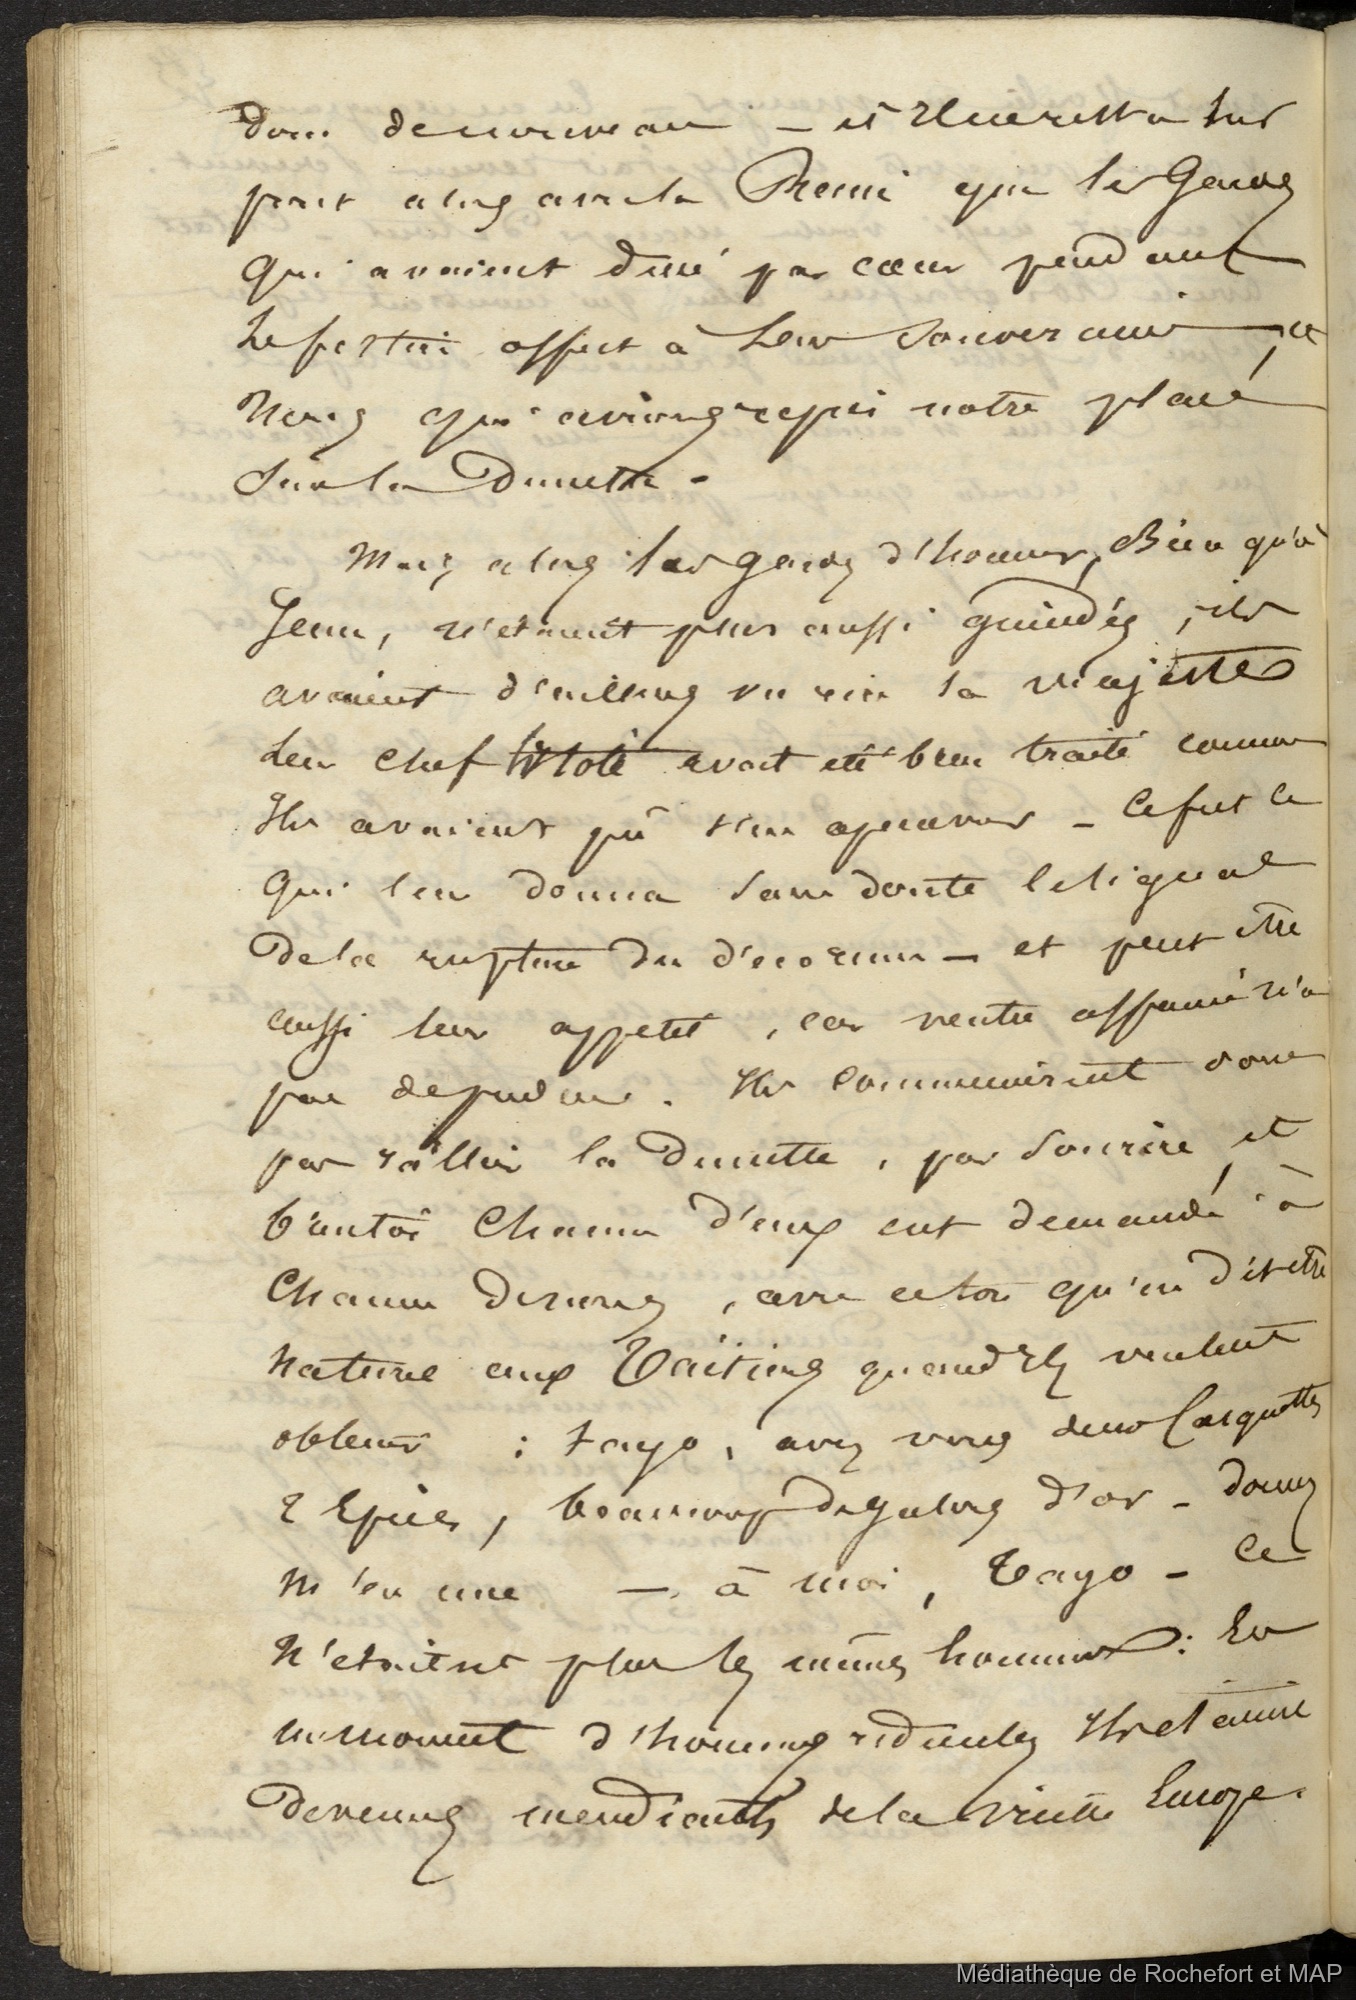 donc de nouveau — et Il ne resta sur
pont alors avec la Reine que les Gardes
qui avaient diné par cœur pendant
le festin offert à leur Souveraine, et
Nous qui avions repris notre place
sur la Dunette -
Mais alors les gardes d'honneur, Bien qu'à
Jeun, n'étaient plus aussi guindés, ils
avaient d'ailleurs vu rire la majesté
leur chef avait été bien traité comme
Ils avaient pû s'en apercevoir — Ce fut ce
qui leur donna sans doute le signal
de la rupture du d'ecorum — et peut etre
aussi leur appetit, car ventre affamé n'a
pas de pudeur. Ils commencèrent donc
par rallier la Dunette, par Sourire, et
b'entôt Chacun d'eux eut demandé à
Chacun de nous, avec ce ton qu'on dit etre
Naturel aux Taïtiens quand Ils veulent
obtenir : tayo, avez vous deux Casquettes
2 Epées, beaucoup de galons d'or — donnez
m'en une — à moi, Tayo — Ce
N'etaient plus les mêmes hommes : En
un moment d'hommes ridicules Ils etaient
Devenus mendiants de la vieille Europe.
Médiathèque de Rochefort et MAP